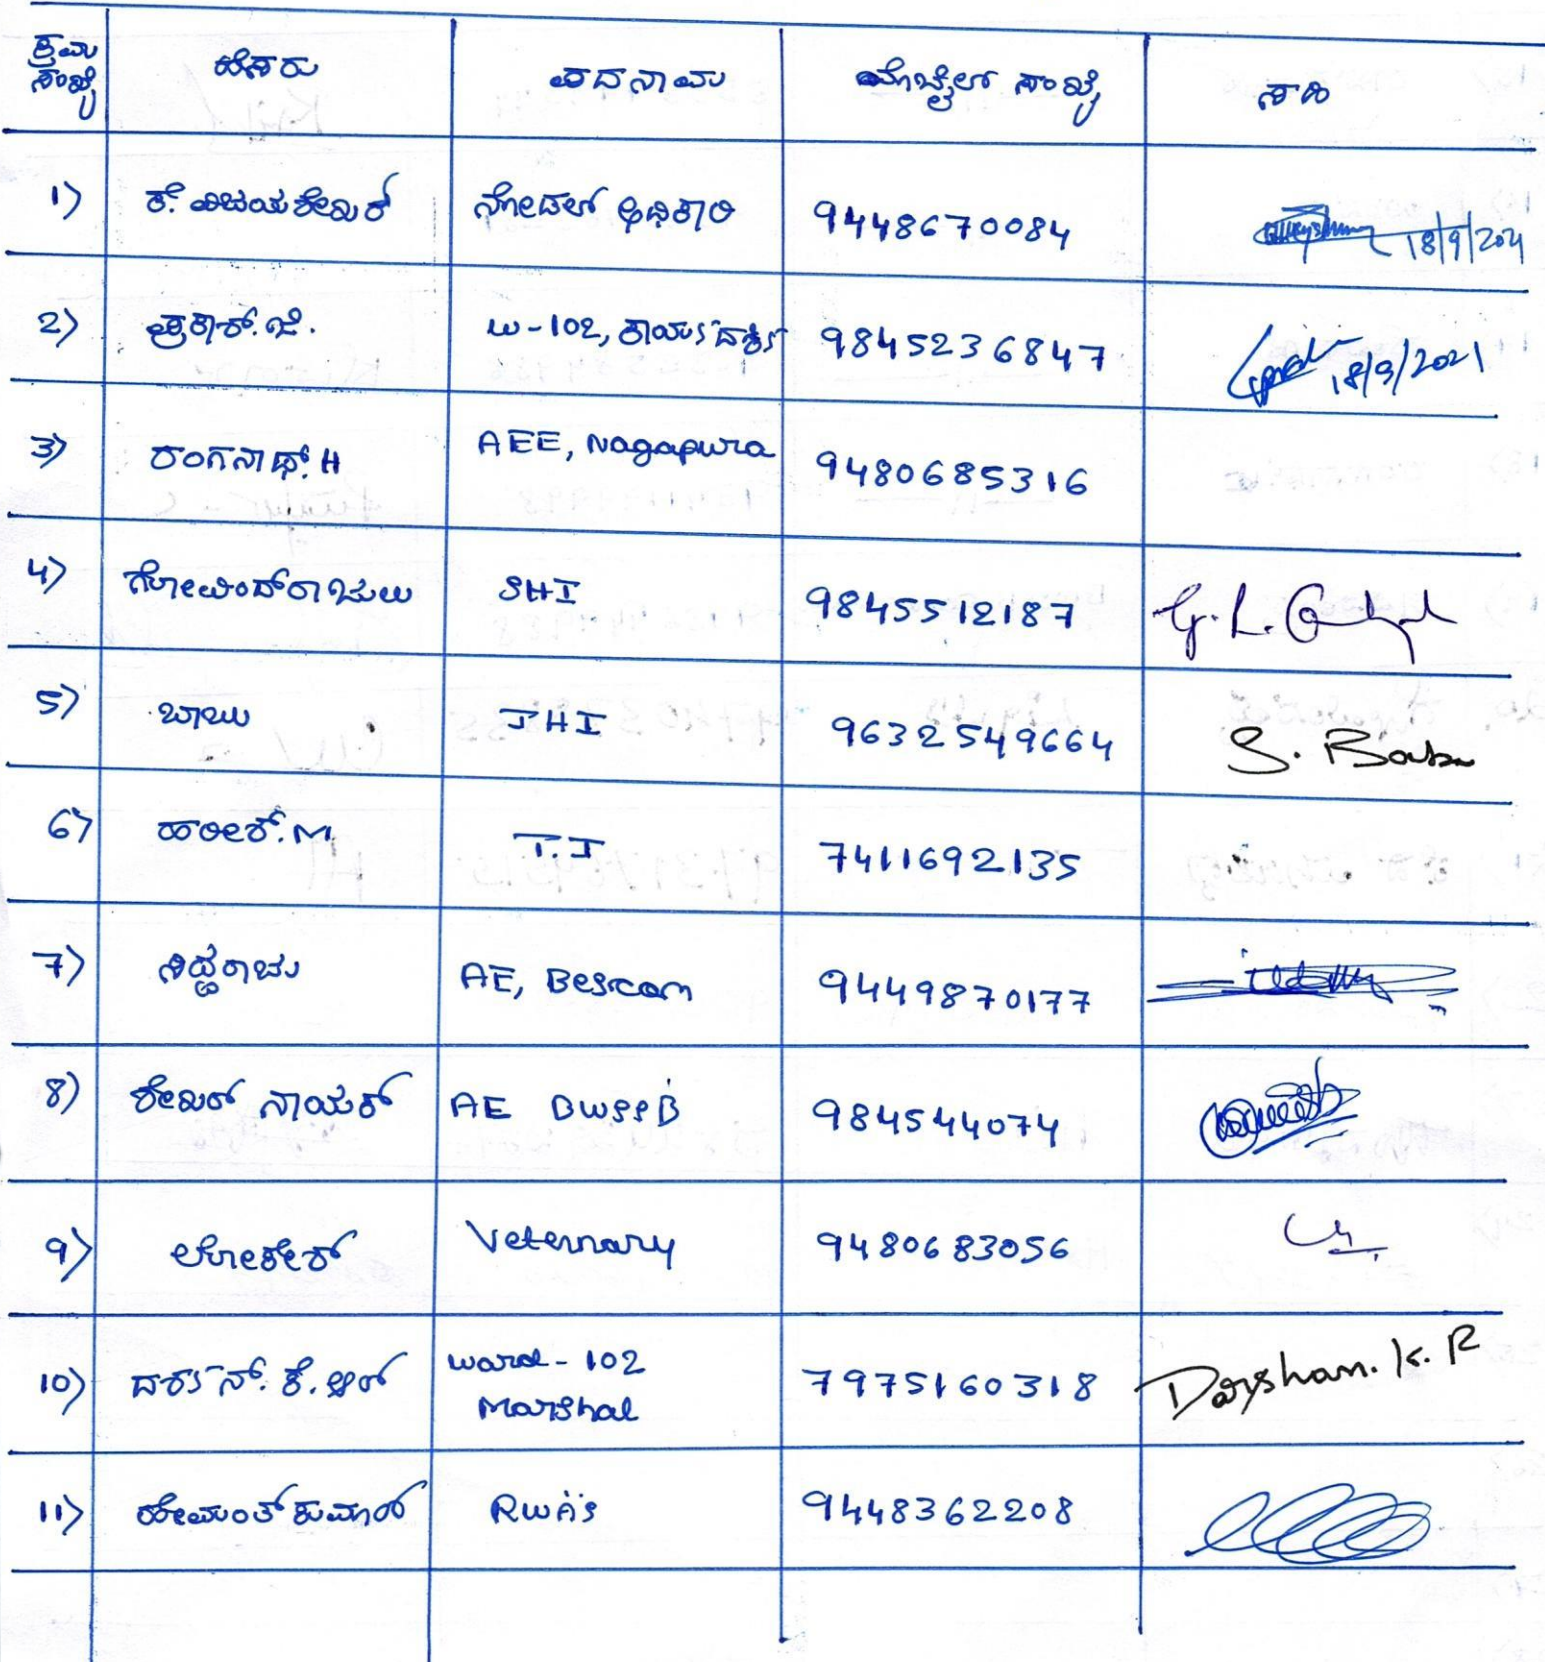 ಕ್ರಮ ಸಂಖ್ಯೆ ಹೆಸರು ಪದನಾಮ ಮೊಬೈಲ್ ಸಂಖ್ಯೆ ಸಹಿ
1) ಕೆ. ವಿಜಯಶೇಖರ್ ನೋಡಲ್ ಅಧಿಕಾರಿ 9448670084 18/9/2021
2) ಪ್ರಕಾಶ್.ಜೆ. W-102, ಕಾರ್ಯದರ್ಶಿ 9845236847 18/9/2021
3) ರಂಗನಾಥ್. H AEE, Nagapura 9480685316
4) ಗೋವಿಂದ್‌ರಾಜುಲು SHI 9845512187 G. L.
5) ಬಾಬು JHI 9632549664 S. Babu
6) ಹರೀಶ್.M T.I 7411692135
7) ಸಿದ್ಧರಾಜು AE, Bescom 9449870177
8) ಶೇಖರ್ ನಾಯಕ್ AE BWSSB 984544074
9) ಲೋಕೇಶ್ Veternary 9480683056
10) ದರ್ಶನ್. ಕೆ. ಆರ್ Ward - 102 Marshal 7975160318 Darshan. K. R
11) ಹೇಮಂತ್ ಕುಮಾರ್ RWA's 9448362208